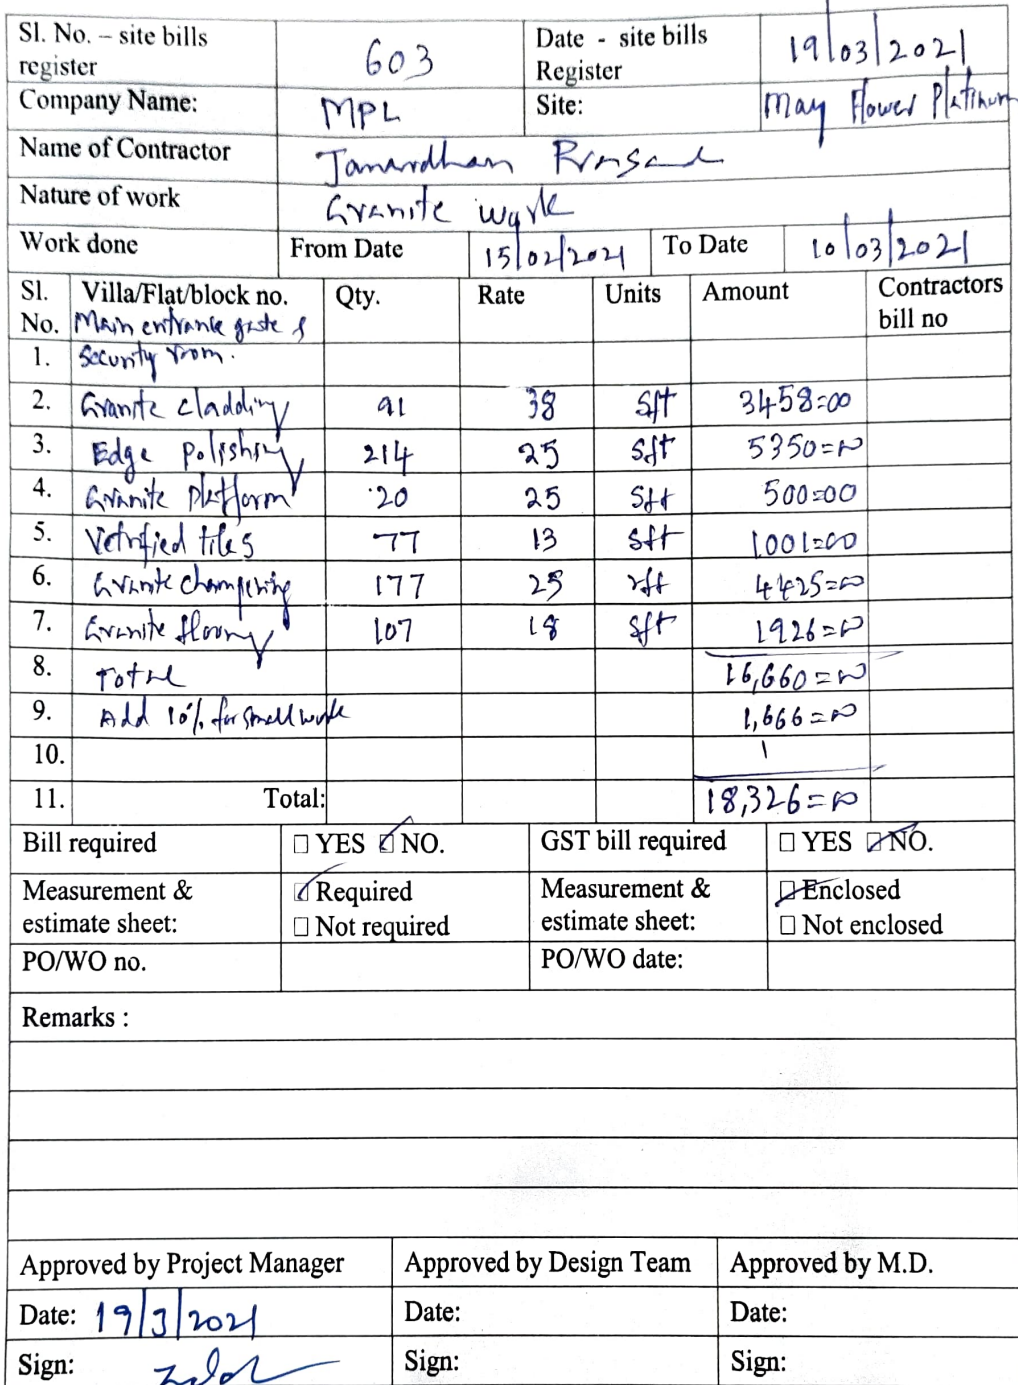 Sl. No. – site bills register 603 Date - site bills Register 19/03/2021
Company Name: MPL Site: May Flower Platinum
Name of Contractor Janardhan Prasad
Nature of work Granite work
Work done From Date 15/02/2021 To Date 10/03/2021
Sl. No. Villa/Flat/block no. Qty. Rate Units Amount Contractors bill no
Main entrance gate &
1. Security room.
2. Granite cladding 91 38 Sft 3458=00
3. Edge polishing 214 25 Sft 5350=00
4. Granite platform 20 25 Sft 500=00
5. Vetrified tiles 77 13 Sft 1001=00
6. Granite champering 177 25 rft 4425=00
7. Granite flooring 107 18 Sft 1926=00
8. Total 16,660=00
9. Add 10% for small work 1,666=00
10.
11. Total: 18,326=00
Bill required □ YES □ NO. GST bill required □ YES □ NO.
Measurement & estimate sheet: □ Required □ Not required Measurement & estimate sheet: □ Enclosed □ Not enclosed
PO/WO no. PO/WO date:
Remarks :
Approved by Project Manager Approved by Design Team Approved by M.D.
Date: 19/3/2021 Date: Date:
Sign: Sign: Sign: